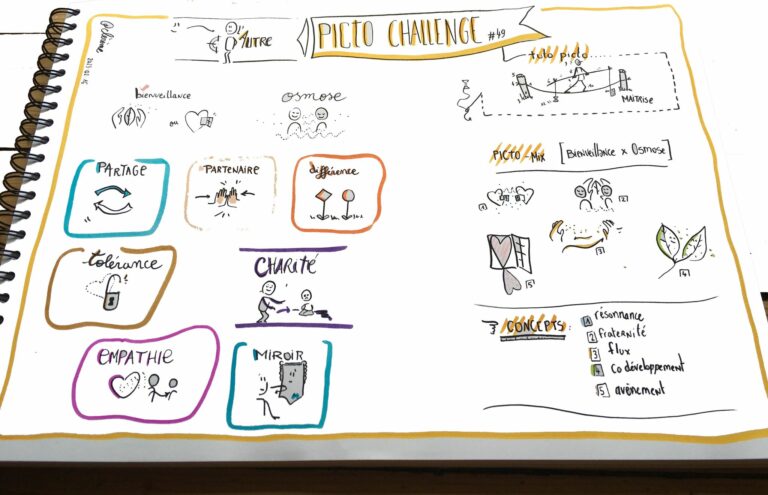 L'AUTRE
PICTO CHALLENGE #49
tuto picto
MAITRISE
bienveillance
ou
osmose
PICTO-Mix [Bienveillance x Osmose]
PARTAGE
PARTENAIRE
différence
1
2
3
4
5
tolérance
CHARITÉ
EMPATHIE
MIROIR
CONCEPTS:
1 résonnance
2 fraternité
3 flux
4 co développement
5 avènement